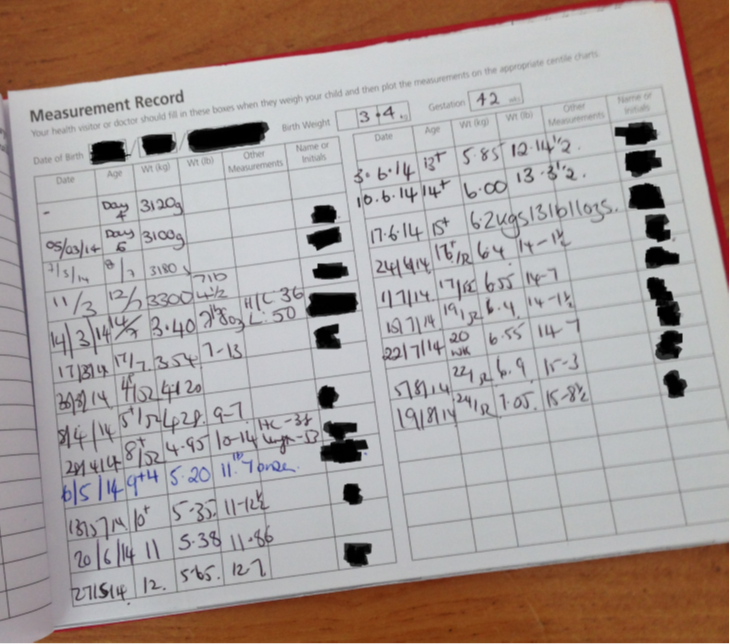 Measurement Record
Your health visitor or doctor should fill in these boxes when they weigh your child and then plot the measurements on the appropriate centile charts.
Date of Birth Birth Weight 3.4 kg Gestation 42 wks
Date Age Wt (kg) Wt (lb) Other Measurements Name or Initials
- Day 4 3120g
05/03/14 Day 6 3100g
7/3/14 8/7 3180g
11/3 12/7 3300 7lb 4½
14/3/14 14/7 3.40 7lb 8oz H/C 36 L: 50
17/3/14 17/7 3.54 7-13
4/52 4.120
8/4/14 5+/52 4.28 9-7
8+/52 4.95 10-14 HC-38 Length-53
6/5/14 9+4 5.20 11lb 7
13/5/14 10+ 5.35 11-12½
20/6/14 11 5.38 11-86
27/5/14 12. 5.65. 12-7
Date Age Wt (kg) Wt (lb) Other Measurements Name or Initials
3.6.14 13+ 5.85 12-14½
10.6.14 14+ 6.00 13-3½
17.6.14 15+ 6.2kgs 13lb 11ozs.
24/6/14 16+/52 6.4 14-1½
1/7/14. 17/52 6.55 14-7
15/7/14 19/52 6.4 14-1½
22/7/14 20 wk 6.55 14-7
5/8/14 22/52 6.9 15-3
19/8/14 24/52 7.05. 15-8½